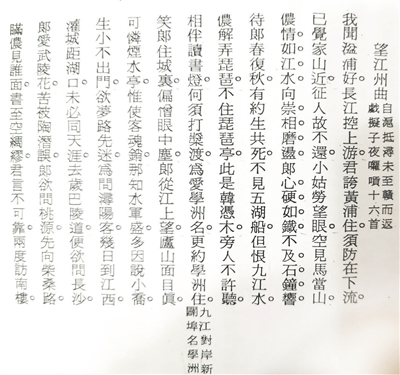 望江州曲 自滬抵潯未至贛而返
戲擬子夜囉嗊十六首
我聞湓浦好長江控上游。君誇黃浦住須防在下流。
已覺家山近征人故不還。小姑勞望眼空見馬當山。
儂情如江水向崇相磨盪。郎心硬如鐵不及石鐘響。
待郎春復秋有約生共死。不見五湖船但恨九江水。
儂解弄琵琶不住琵琶亭。此是韓憑木旁人不許聽。
相伴讀書燈何須打槳渡。為愛學洲名更約學洲住。九江對岸新
闢埠名學洲
笑郎住城裏偏憎眼中塵。郎從江上望廬山面目真。
可憐煙水亭惟使客魂銷。那知水軍盛多因說小喬。
生小不出門欲夢路先迷。為問潯陽客幾日到江西。
灌城距湖口未必同天涯。去歲巴陵道便欲問長沙。
郎愛武陵花苦被陶潛誤。郎欲問桃源先向柴桑路。
瞞儂見誰面書至空綢繆。君言不可靠兩度訪南樓。